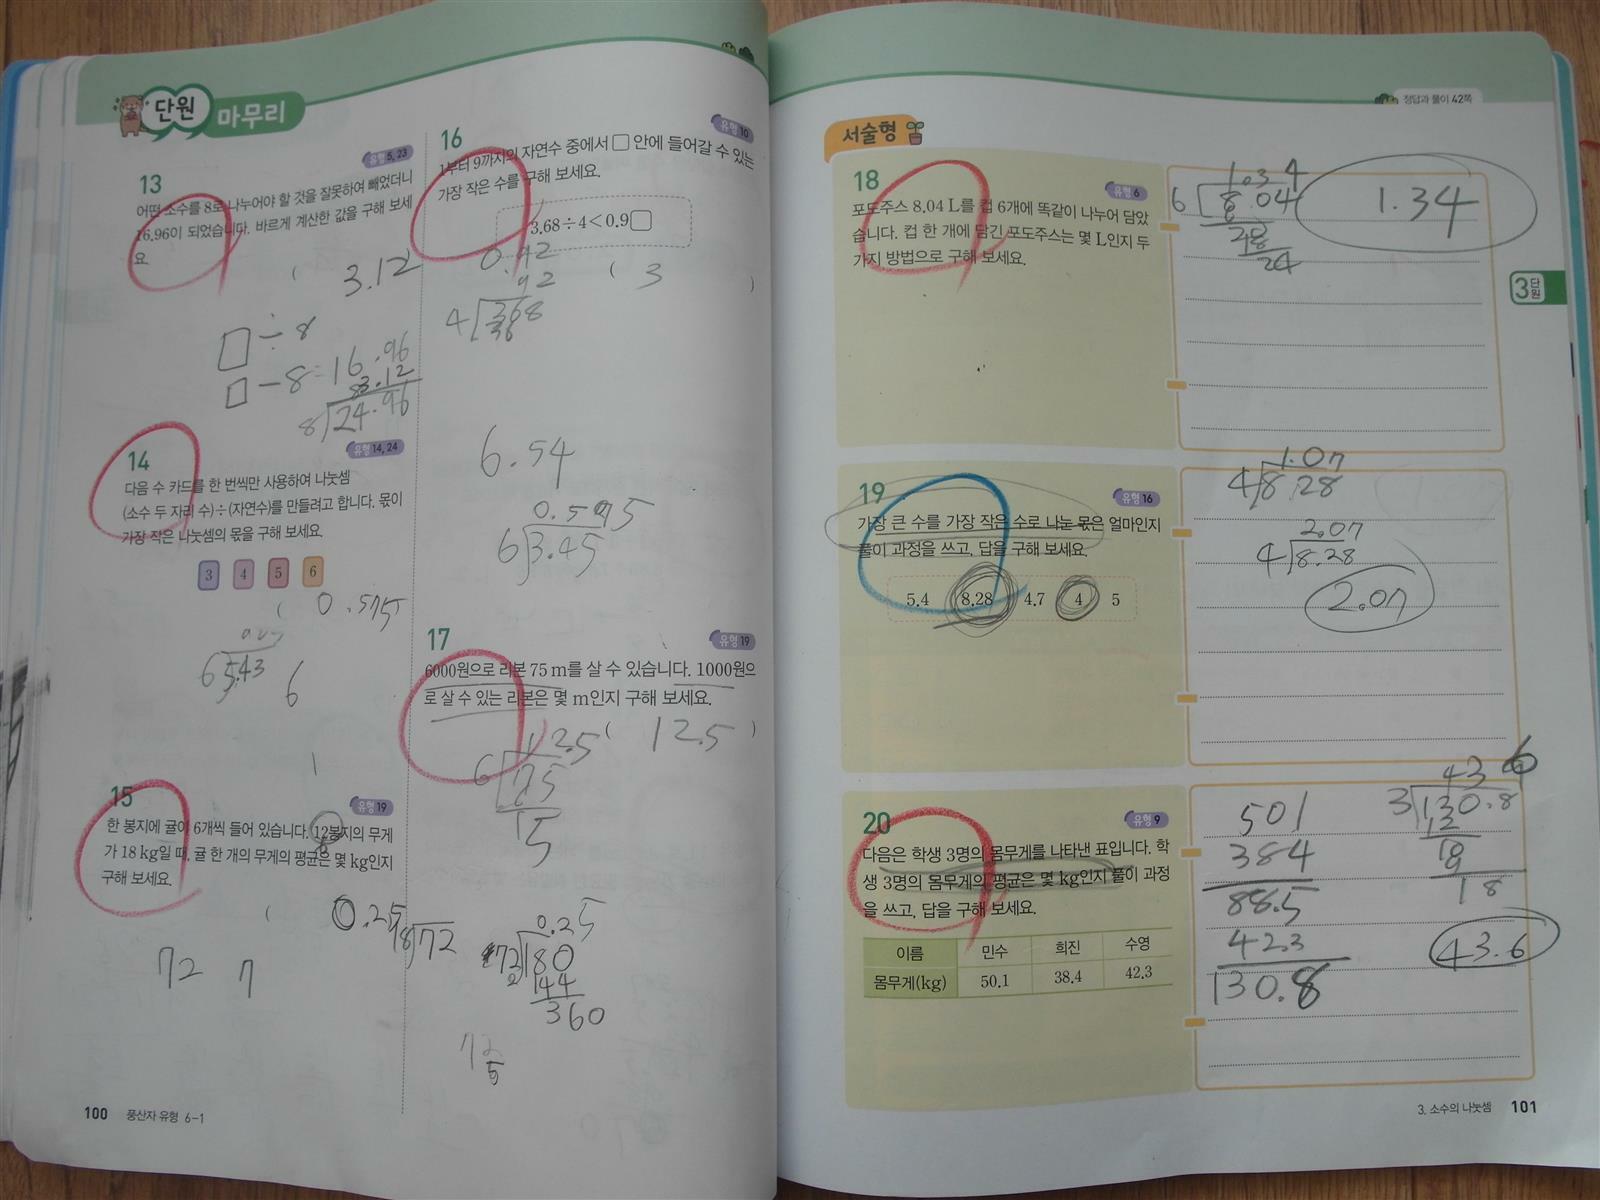 단원 마무리
13
유형 5, 23
어떤 소수를 8로 나누어야 할 것을 잘못하여 뺐었더니
16.96이 되었습니다. 바르게 계산한 값을 구해 보세
요.
( 3.12
□ ÷ 8
□ - 8 = 16.96
3.12
8 24.96
14
유형 14, 24
다음 수 카드를 한 번씩만 사용하여 나눗셈
(소수 두 자리 수)÷(자연수)를 만들려고 합니다. 몫이
가장 작은 나눗셈의 몫을 구해 보세요.
3 4 5 6
( 0.575
6 5.43
6
15
유형 19
한 봉지에 귤이 6개씩 들어 있습니다. 12봉지의 무게
가 18 kg일 때, 귤 한 개의 무게의 평균은 몇 kg인지
구해 보세요.
( 0.25
18 72
72 7
0.25
72 180
144
360
16
유형 10
1부터 9까지의 자연수 중에서 □ 안에 들어갈 수 있는
가장 작은 수를 구해 보세요.
3.68÷4<0.9□
0.92
( 3 )
92
4 368
36
6.54
0.575
6 3.45
17
유형 19
6000원으로 리본 75 m를 살 수 있습니다. 1000원으
로 살 수 있는 리본은 몇 m인지 구해 보세요.
( 12.5 )
12.5
6 75
15
100 풍산자 유형 6-1
정답과 풀이 42쪽
서술형
18
유형 6
포도주스 8.04 L를 컵 6개에 똑같이 나누어 담았
습니다. 컵 한 개에 담긴 포도주스는 몇 L인지 두
가지 방법으로 구해 보세요.
1.34
6 8.04
6
24
1.34
3단원
19
유형 16
가장 큰 수를 가장 작은 수로 나눈 몫은 얼마인지
풀이 과정을 쓰고, 답을 구해 보세요.
5.4 8.28 4.7 4 5
1.07
4 8.28
2.07
4 8.28
2.07
20
유형 9
다음은 학생 3명의 몸무게를 나타낸 표입니다. 학
생 3명의 몸무게의 평균은 몇 kg인지 풀이 과정
을 쓰고, 답을 구해 보세요.
이름 민수 희진 수영
몸무게(kg) 50.1 38.4 42.3
501
384
88.5
42.3
130.8
43.6
3 130.8
12
9
18
43.6
3. 소수의 나눗셈 101